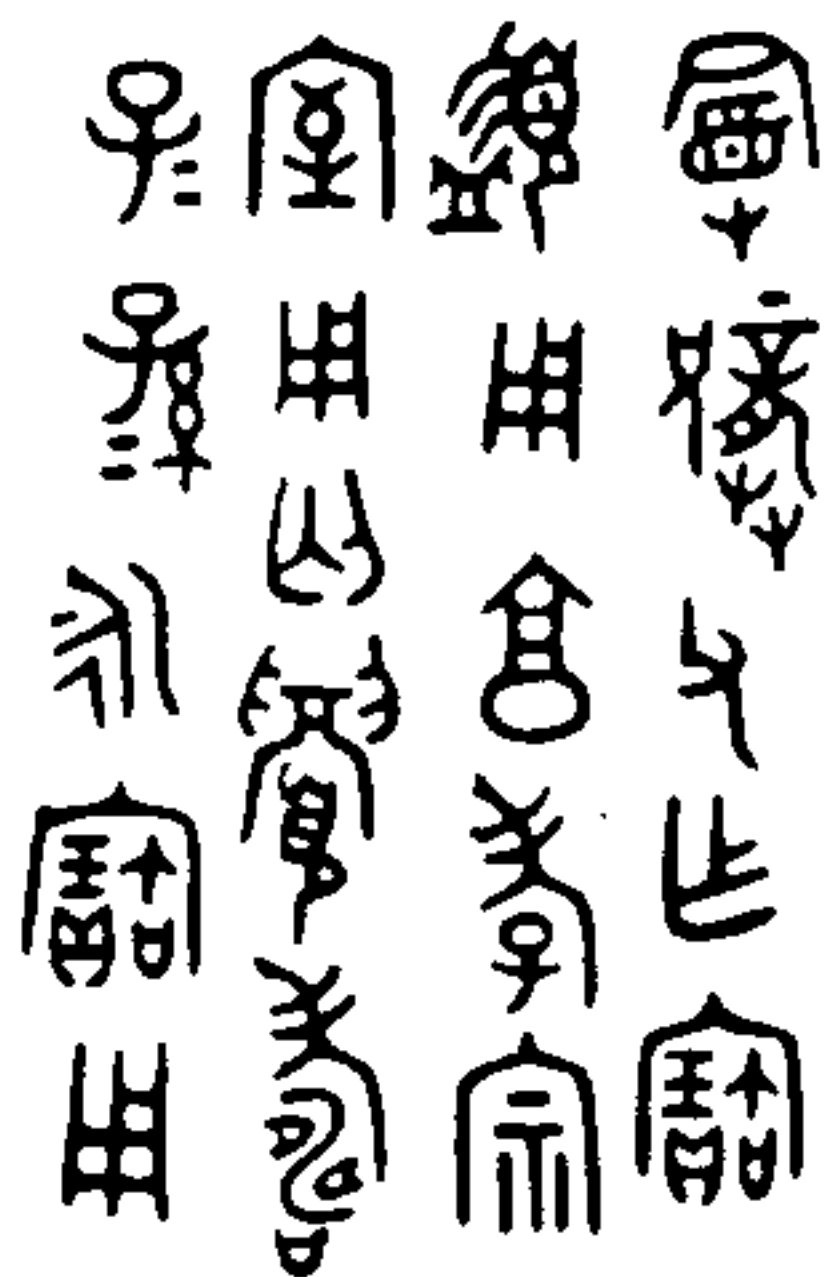 曼龏父乍寶
盨用享孝宗
室用匄眉壽
子＝孫＝永寶用